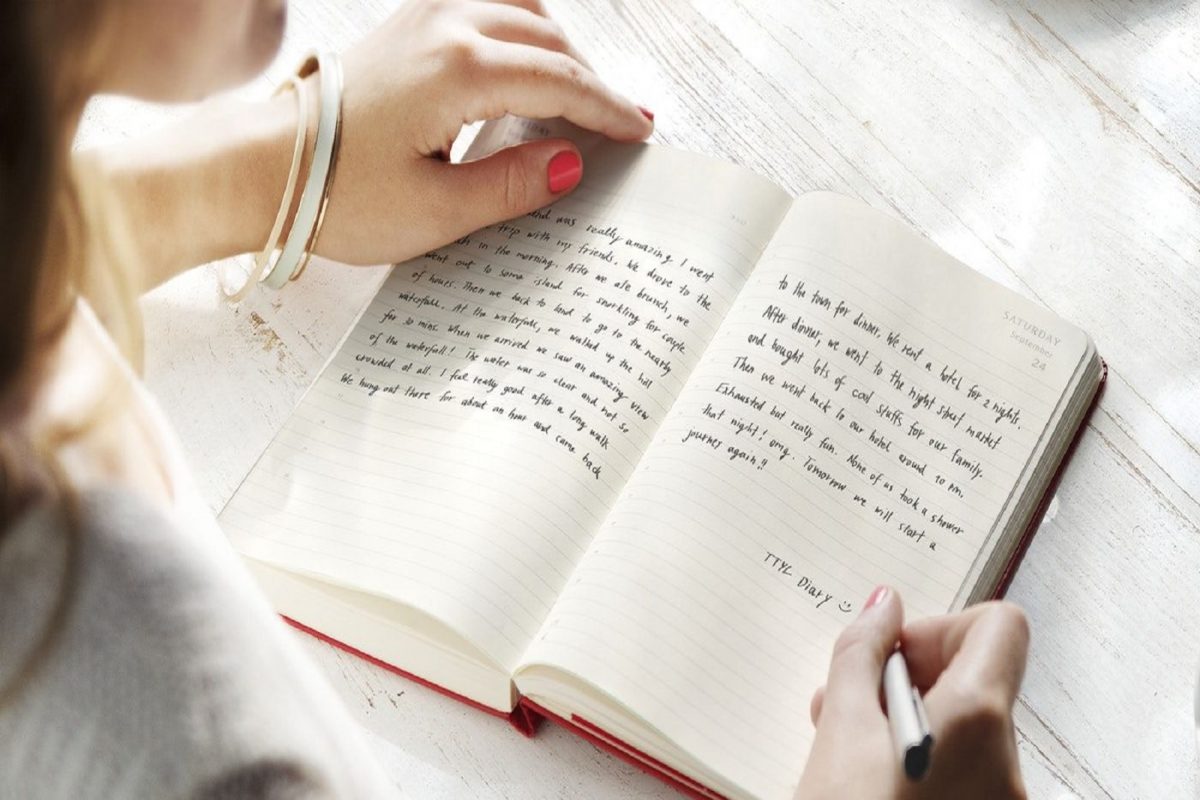 end was really amazing. I went
trip with my friends. We drove to the
in the morning. After we ate brunch, we
went out to some island for snorkling for couple
of hours. Then we back to land to go to the nearby
waterfall. At the waterfall, we walked up the hill
for 30 mins. When we arrived we saw an amazing view
of the waterfall! The water was so clear and not so
crowded at all. I feel really good after a long walk
We hung out there for about an hour and came back
SATURDAY
September
24
to the town for dinner. We rent a hotel for 2 nights.
After dinner, we went to the night street market
and bought lots of cool stuffs for our family.
Then we went back to our hotel around 10 pm.
Exhausted but really fun. None of us took a shower
that night! omg. Tomorrow we will start a
journey again!!
TTYL Diary